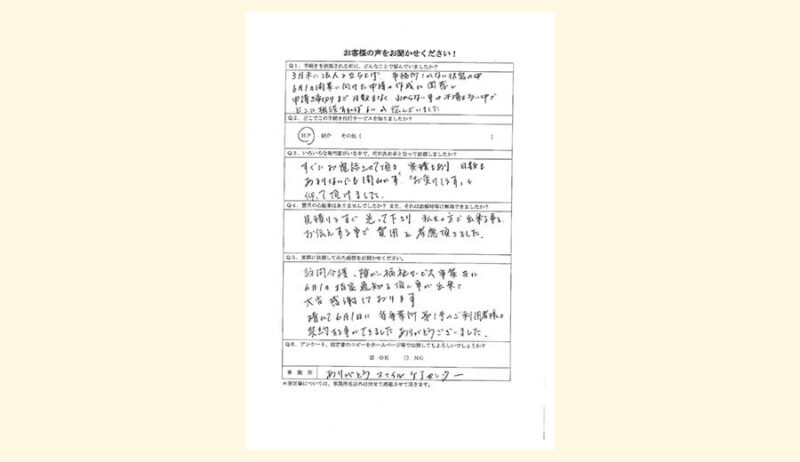 お客様の声をお聞かせください！
Q1．手続きを依頼される前に、どんなことで悩んでいましたか？
3月末に法人を立ち上げ 事務所しかない状態の中
6月1日開業に向けた申請の作成に困惑し
申請〆切りまで日数もなく わからない事や不備もある中で
どこに相談すればよいか悩んでいました
Q2．どこでこの手続き代行サービスを知りましたか？
HP 紹介 その他（ ）
Q3．いろいろな専門家がいる中で、何が決め手となって依頼しましたか？
すぐにお電話させて頂き 実績もあり 日数も
あまりないにも関わらず、「お受けします」と
仰って頂けました。
Q4．費用の心配事はありませんでしたか？また、それは依頼時等に解消できましたか？
見積りもすぐ送って下さり 私共の方で出来る事を
お伝えする事で 費用も考慮頂きました。
Q5．実際に依頼してみた感想をお聞かせください。
訪問介護、障がい福祉サービス事業共に
6月1日指定通知を頂く事が出来て
大変感謝しております
6月1日に 当事業所 第1号のご利用者様と
契約する事ができました ありがとうございました。
Q6．アンケート、指定書のコピーをホームページ等で公開してもよろしいでしょうか？
☑ OK □ NG
事業所 ありがとう スマイル ケアセンター
＊指定書については、事業所名以外は伏せて掲載させて頂きます。